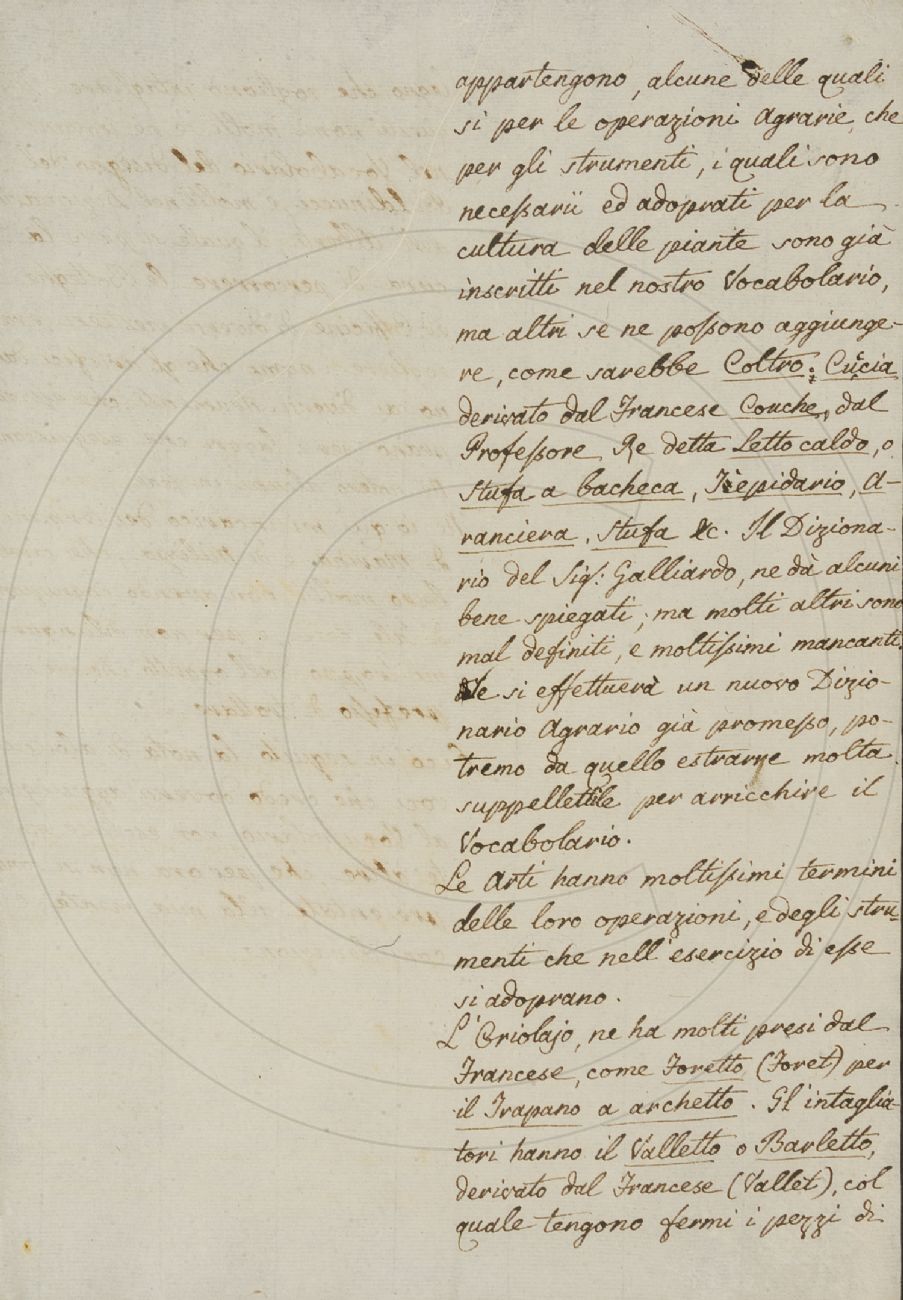 appartengono, alcune delle quali
si per le operazioni Agrarie, che
per gli strumenti, i quali sono
necessarii ed adoprati per la
cultura delle piante sono già
inscritti nel nostro Vocabolario,
ma altri se ne possono aggiunge-
re, come sarebbe Coltro; Cuccia
derivato dal Francese Couche, dal
Professore Re detta Letto caldo, o
stufa a bacheca, Tiepidario, A-
ranciera, stufa &c. Il Diziona-
rio del Sig.: Galliardo, ne dà alcuni
bene spiegati; ma molti altri sono
mal definiti, e moltissimi mancanti.
Se si effettuerà un nuovo Dizio-
nario Agrario già promesso, po-
tremo da quello estrarne molta
suppellettile per arricchire il
Vocabolario.
Le Arti hanno moltissimi termini
delle loro operazioni, e degli stru-
menti che nell'esercizio di esse
si adoprano.
L'Oriolajo, ne ha molti presi dal
Francese, come Foretto (Foret) per
il Trapano a archetto. Gl'intaglia-
tori hanno il Valletto o Barletto,
derivato dal Francese (Vallet), col
quale tengono fermi i pezzi di